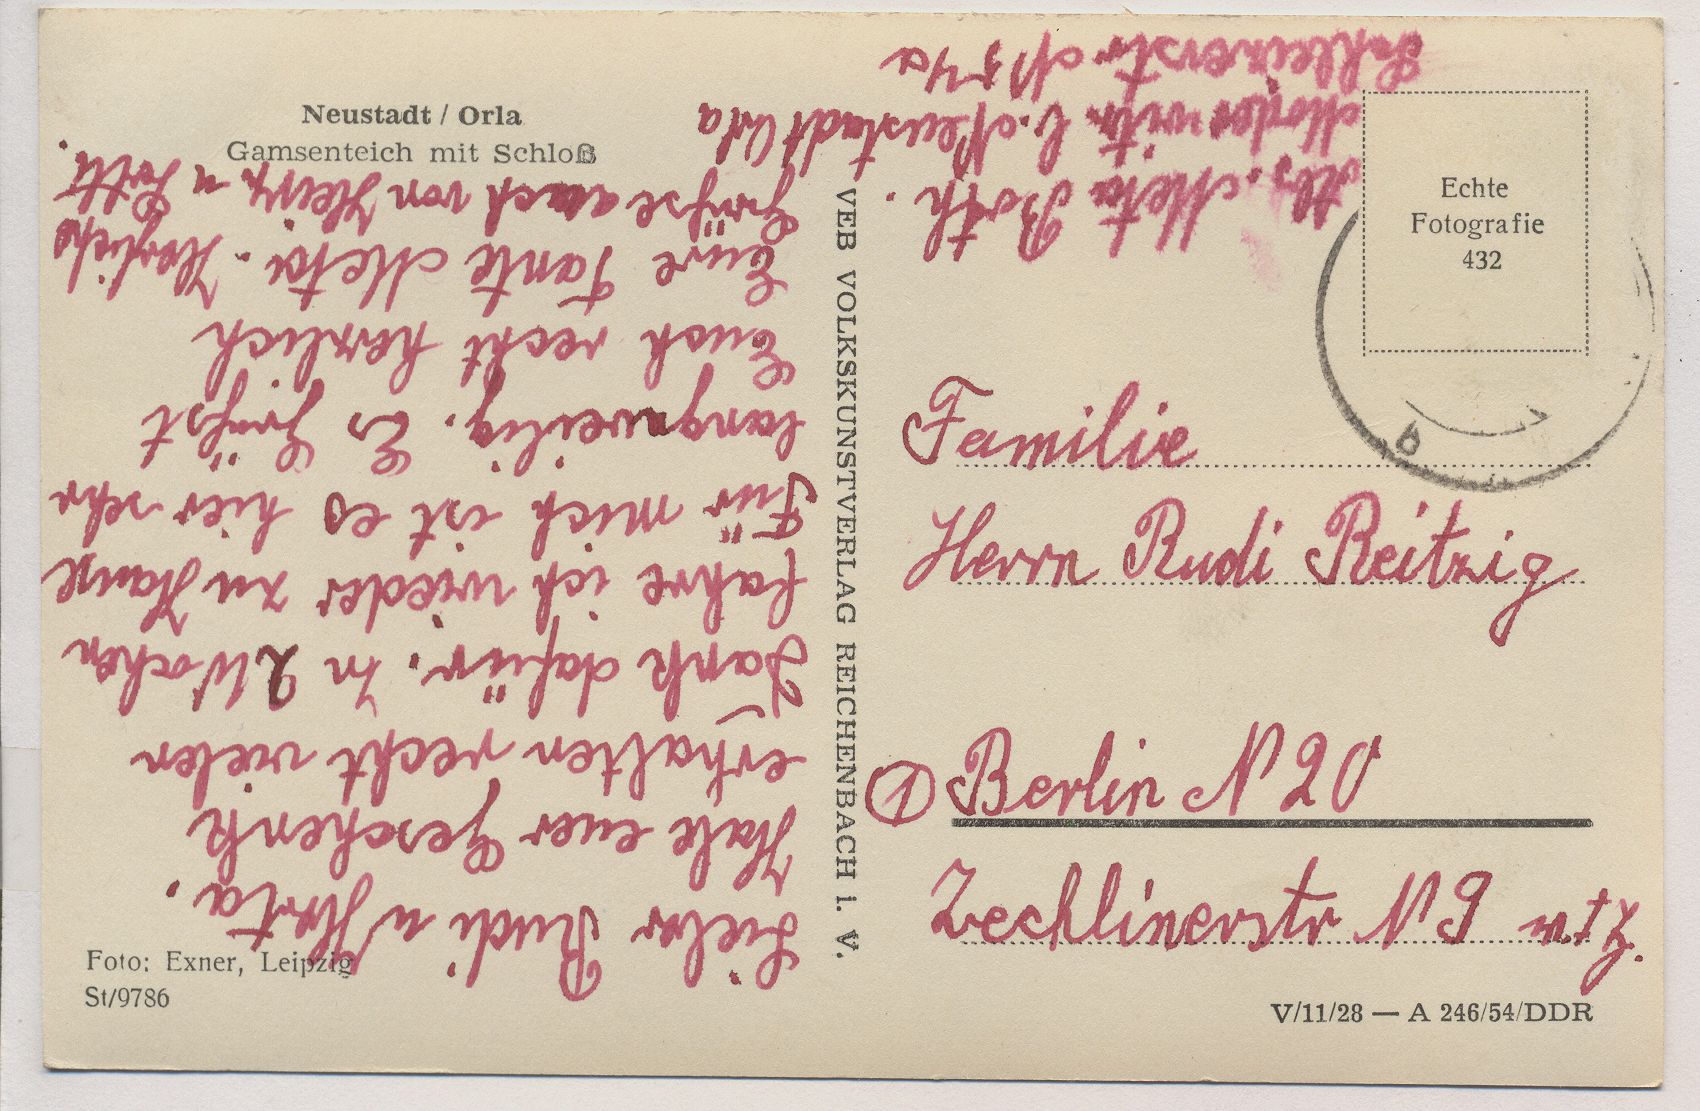 Neustadt / Orla
Gamsenteich mit Schloß
Lieber Rudi u Herta.
Habe euer Geschenk
erhalten recht vielen
Dank dafür. In 2 Wochen
fahre ich wieder zu Hause
Für mich ist es hier sehr
langweilig. Es Grüßt
Euch recht herzlich
Eure Tante Meta. Herzliche
Grüße auch von Heinz u Lotti.
Foto: Exner, Leipzig
St/9786
VEB VOLKSKUNSTVERLAG REICHENBACH i. V.
Abs. Meta Both.
Moderwitz b. Neustadt Orla
Schleizerstr N 54a
Echte
Fotografie
432
b
Familie
Herrn Rudi Reitzig
① Berlin N 20
Zechlinerstr N 9
V/11/28 — A 246/54/DDR